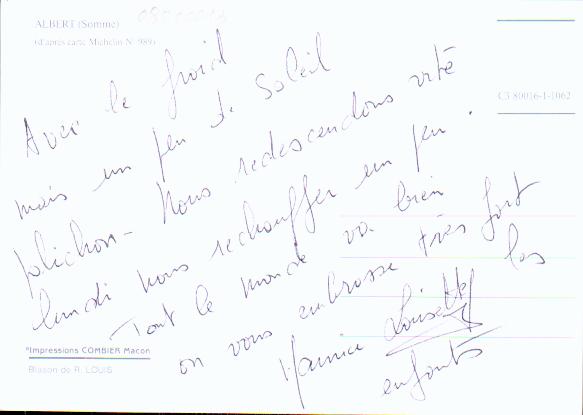 ALBERT (Somme)
(d'après carte Michelin N° 989)
C3 80016-1-1062
Avec le froid
mais un peu de soleil
Nous redescendons vite
lundi nous rechauffer un peu.
Tout le monde va bien
on vous embrasse très fort
Maurice Louisette les
enfants
"Impressions COMBIER Macon
Blason de R. LOUIS